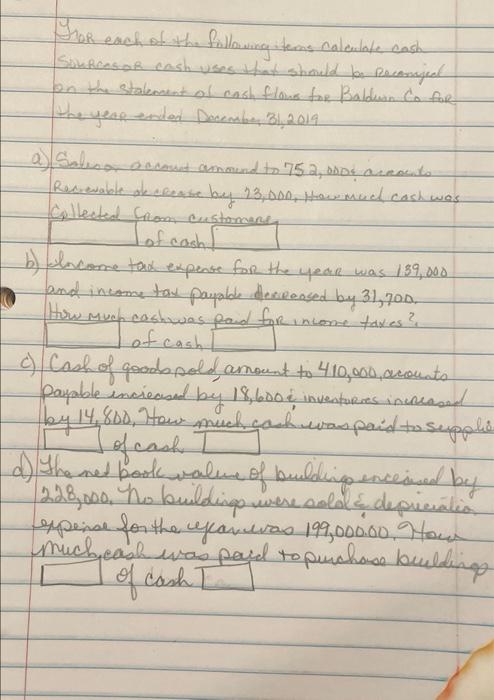 For each of the following items calculate cash
Sources or cash uses that should be recognized
on the statement of cash flows for Baldwin Co for
the year ended December 31, 2019
a) Sales on account amound to 752,000 & accounts
Receivable decrease by 23,000, How much cash was
Collected from customers
of cash
b) Income tax expense for the year was 139,000
and income tax payable decreased by 31,700.
How much cash was paid for income taxes?
of cash
c) Cash of goods sold amount to 410,000, accounts
payable increased by 18,600 & inventories increased
by 14,800, How much cash was paid to supplie
of cash
d) The net book value of building increased by
228,000. No buildings were sold & depreciation
expense for the year was 199,000.00. How
much cash was paid to purchase buildings
of cash